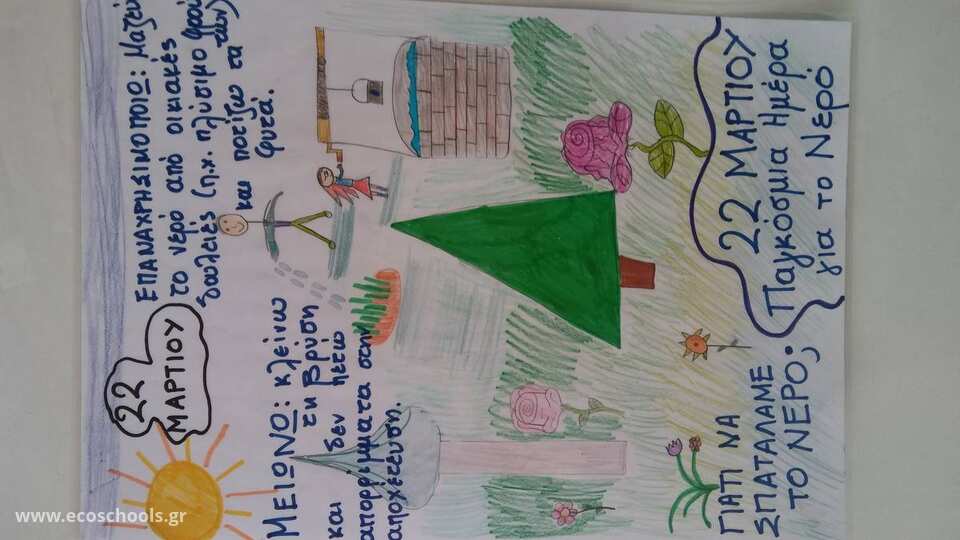 22
ΜΑΡΤΙΟΥ
ΕΠΑΝΑΧΡΗΣΙΜΟΠΟΙΩ: Μαζεύω
το νερό από οικιακές
δουλειές (π.χ. πλύσιμο
και ποτίζω τα
φυτά.
ΜΕΙΩΝΩ: κλείνω
τη βρύση
και δεν πετώ
απορρίμματα στην
αποχέτευση.
ΓΙΑΤΙ ΝΑ
ΣΠΑΤΑΛΑΜΕ
ΤΟ ΝΕΡΟ;
22 ΜΑΡΤΙΟΥ
Παγκόσμια Ημέρα
για το Νερό
www.ecoschools.gr